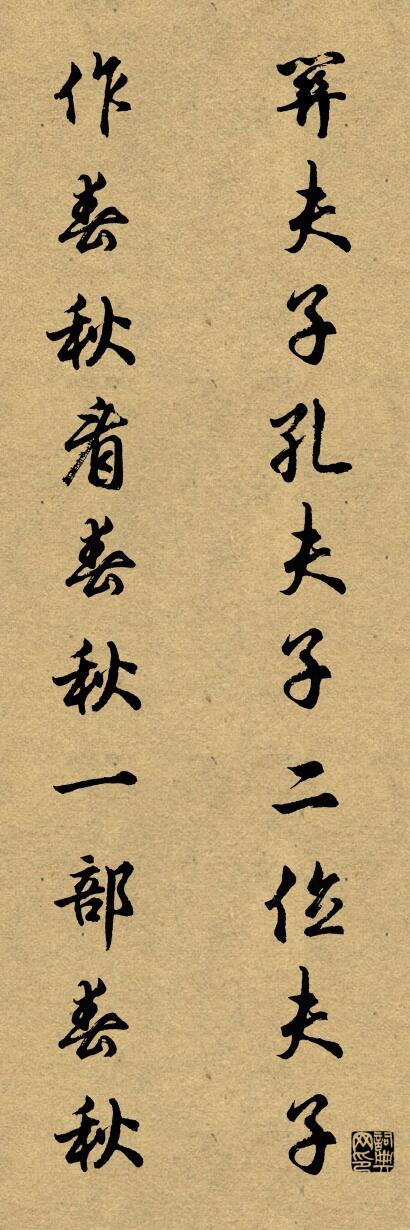 關夫子孔夫子二位夫子
作春秋看春秋一部春秋
詞典
网印